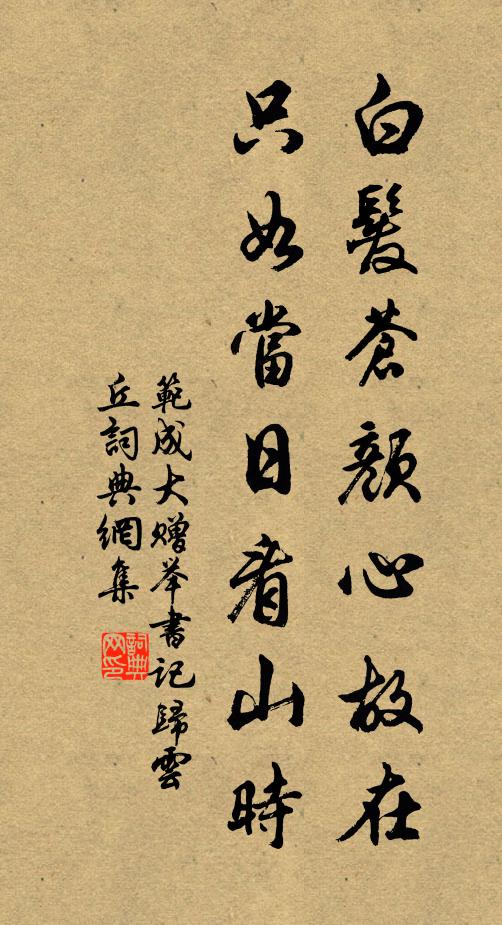 白髮蒼顏心故在
只如當日看山時
範成大贈举書記歸雲
丘詞典網集
詞典网印